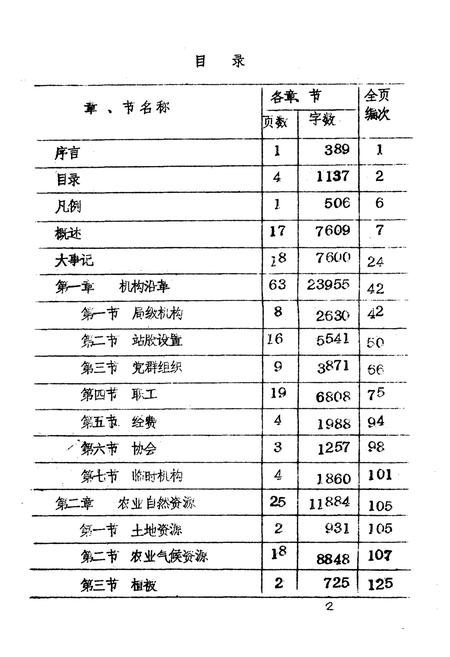 目 录
章、节名称 各章、节 全页
页数 字数 编次
序言 1 389 1
目录 4 1137 2
凡例 1 506 6
概述 17 7609 7
大事记 18 7600 24
第一章 机构沿革 63 23955 42
第一节 局级机构 8 2630 42
第二节 站股设置 16 5541 50
第三节 党群组织 9 3871 66
第四节 职工 19 6808 75
第五节 经费 4 1988 94
第六节 协会 3 1257 98
第七节 临时机构 4 1860 101
第二章 农业自然资源 25 11884 105
第一节 土地资源 2 931 105
第二节 农业气候资源 18 8848 107
第三节 植被 2 725 125
2